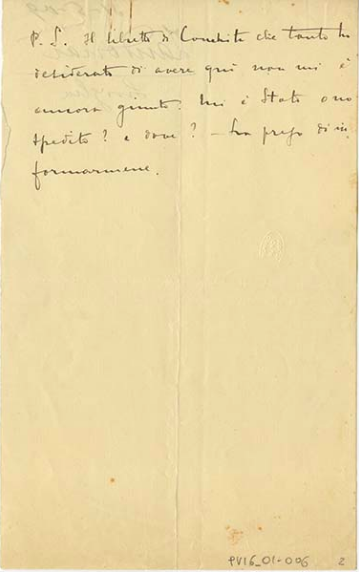 P. S. Il libretto di Conchita che tanto ho
desiderato di avere qui non mi è
ancora giunto. Mi è stato
spedito? e dove? – La prego di in
formarmene.
PV16_01-006 2